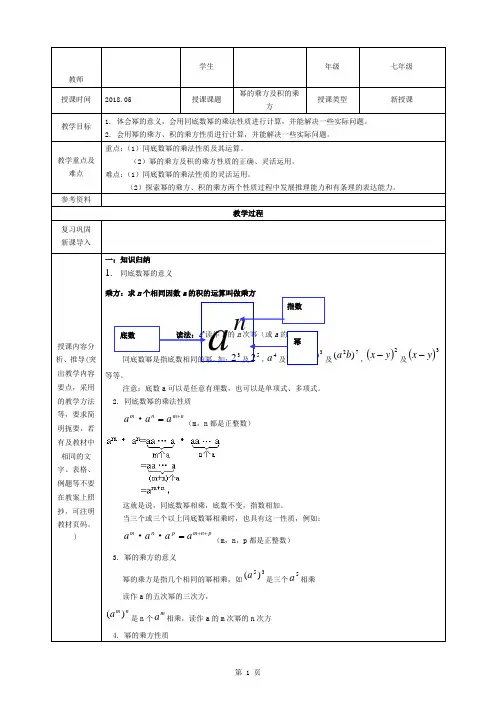 教师 学生 年级 七年级
授课时间 2018.05 授课课题 幂的乘方及积的乘方 授课类型 新授课
教学目标
1. 体会幂的意义，会用同底数幂的乘法性质进行计算，并能解决一些实际问题。
2. 会用幂的乘方、积的乘方性质进行计算，并能解决一些实际问题。
教学重点及难点
重点：(1) 同底数幂的乘法性质及其运算。
(2) 幂的乘方及积的乘方性质的正确、灵活运用。
难点：(1) 同底数幂的乘法性质的灵活运用。
(2) 探索幂的乘方、积的乘方两个性质过程中发展推理能力和有条理的表达能力。
参考资料
教学过程
复习巩固
新课导入
授课内容分析、推导(突出教学内容要点，采用的教学方法等，要求简明扼要，若有及教材中相同的文字、表格、例题等不要在教案上照抄，可注明教材页码。)
一：知识归纳
1. 同底数幂的意义
乘方：求n个相同因数a的积的运算叫做乘方
指数
底数 读法：
幂
aⁿ
同底数幂是指底数相同的幂
等等。
注意：底数a可以是任意有理数，也可以是单项式、多项式。
2. 同底数幂的乘法性质
a^m · a^n = a^(m+n) (m，n都是正整数)
a^m · a^n = aa⋯a · aa⋯a
m个a n个a
=aa⋯a
(m+n)个a
=a^(m+n)，
这就是说，同底数幂相乘，底数不变，指数相加。
当三个或三个以上同底数幂相乘时，也具有这一性质，例如：
a^m · a^n · a^p = a^(m+n+p) (m，n，p都是正整数)
3. 幂的乘方的意义
幂的乘方是指几个相同的幂相乘，如(a⁵)³是三个a⁵相乘
读作a的五次幂的三次方，
(a^m)^n是n个a^m相乘，读作a的m次幂的n次方
4. 幂的乘方性质
第 1 页